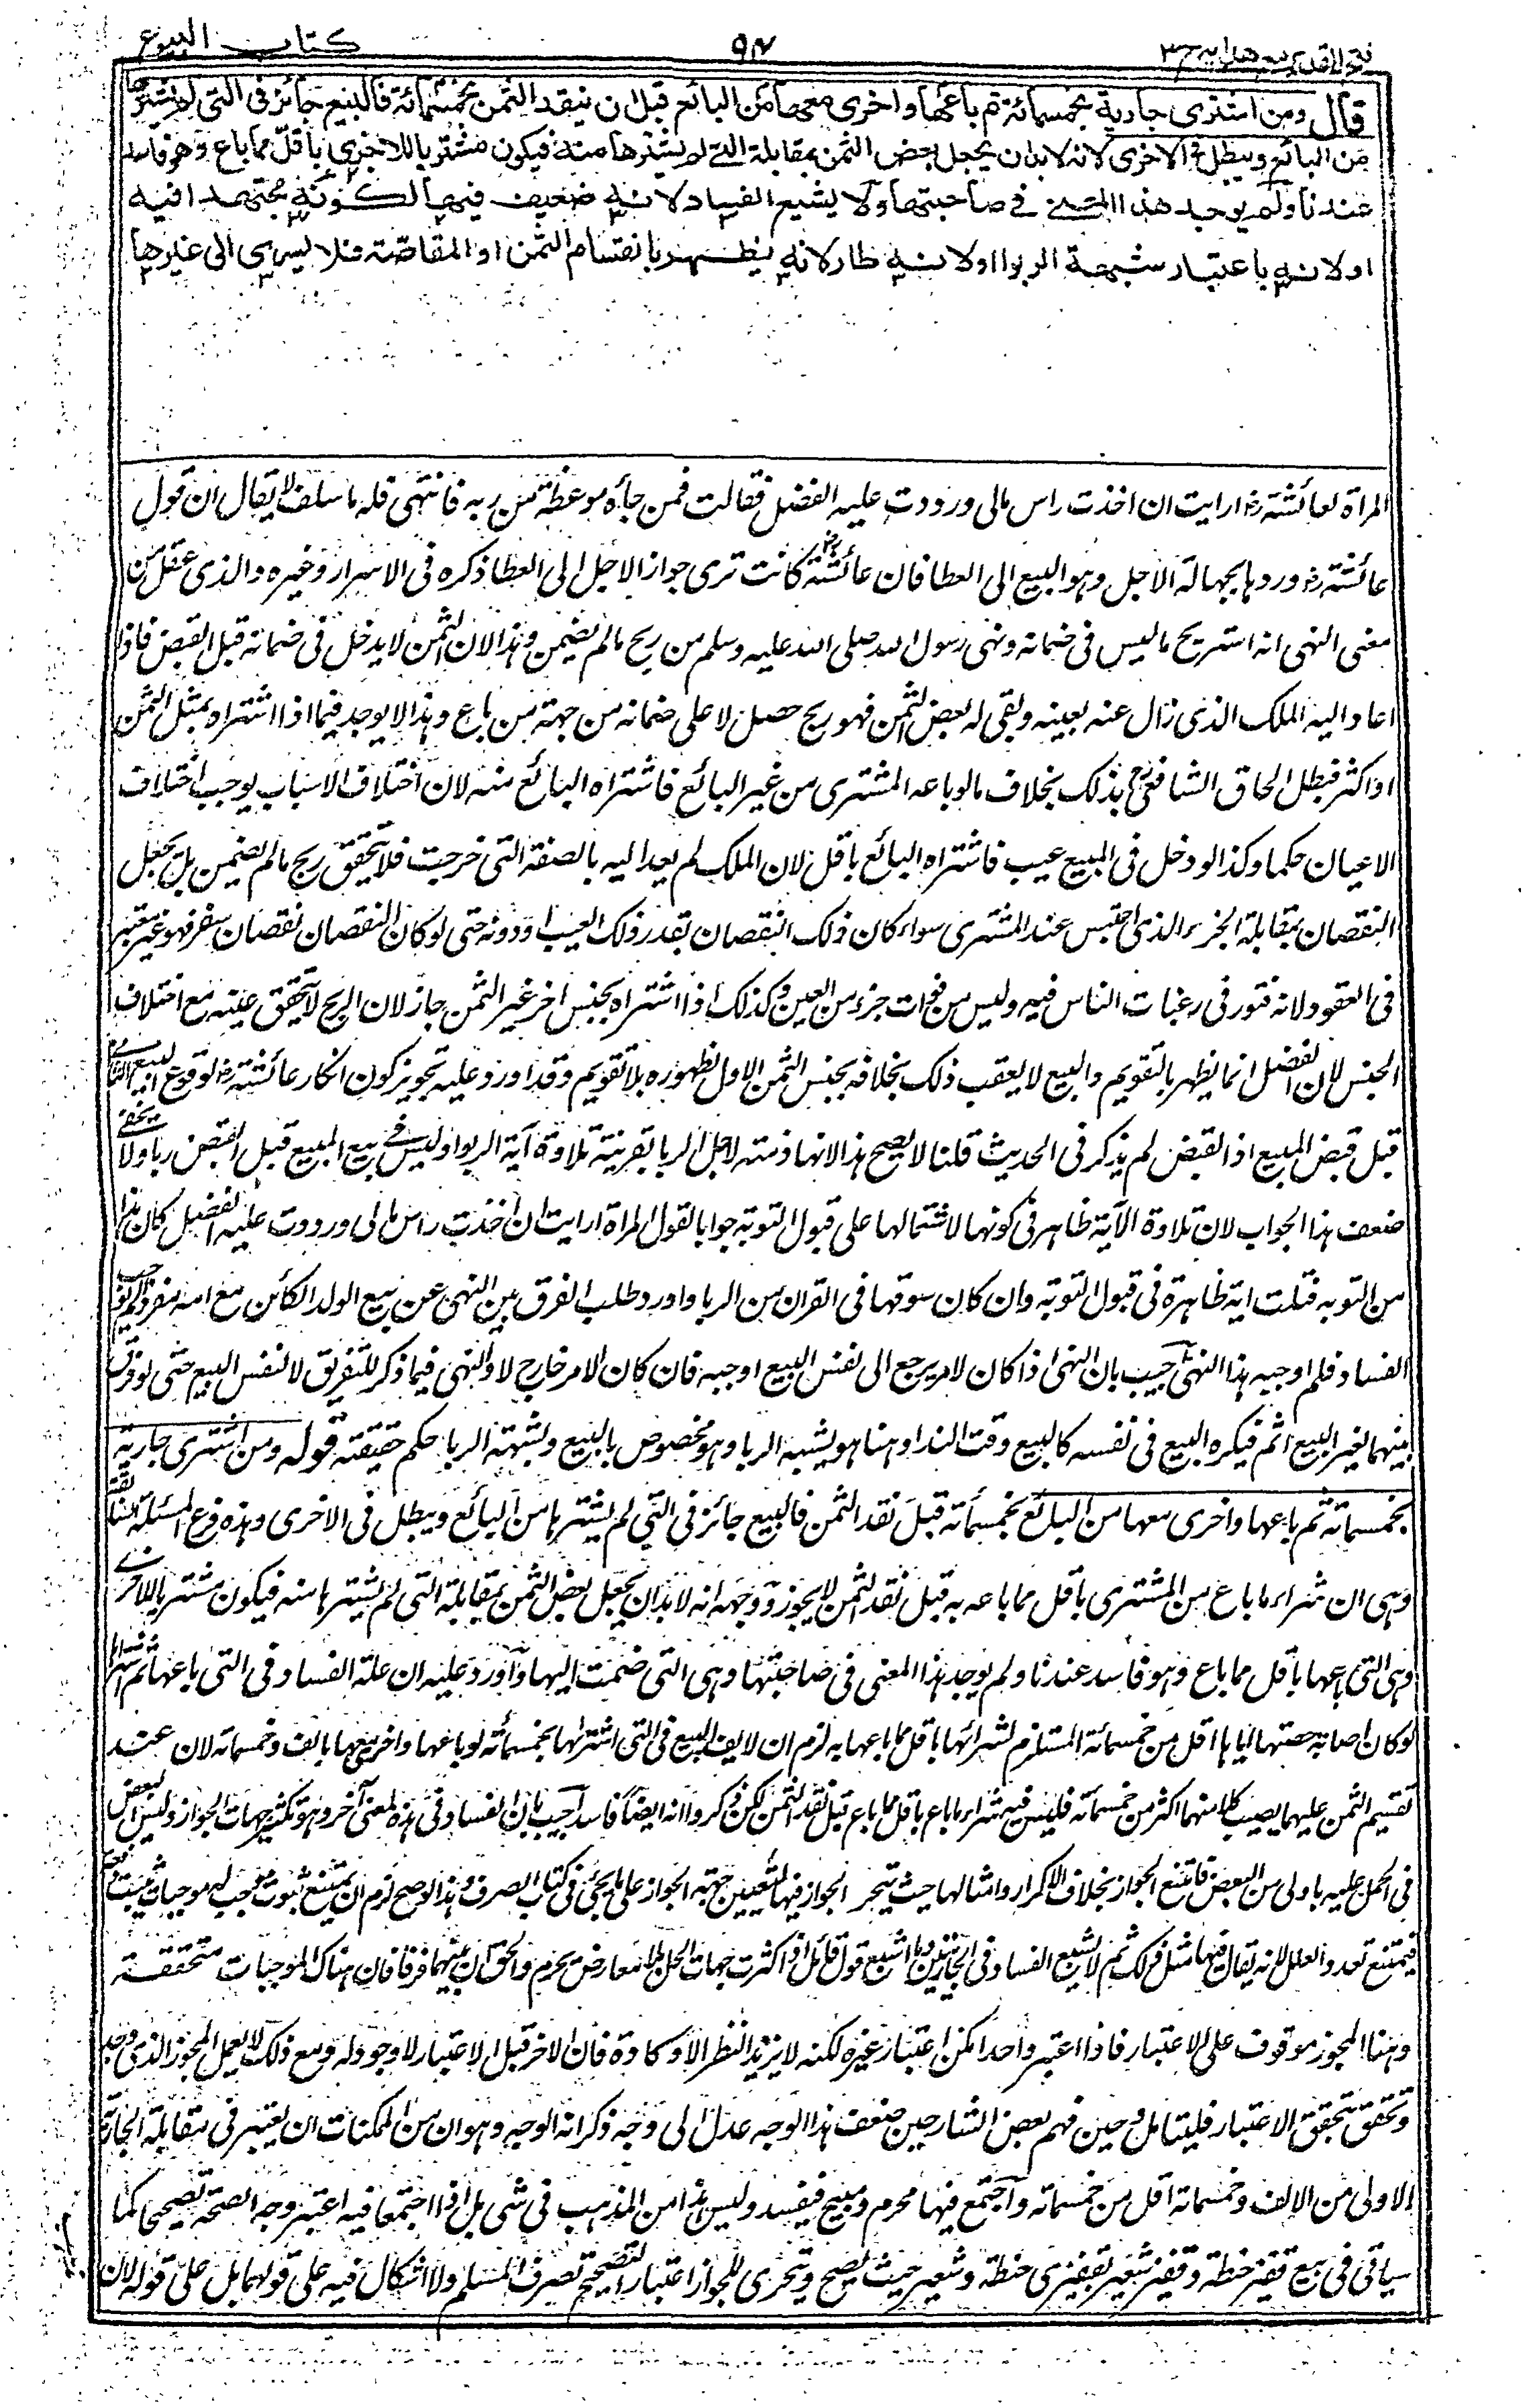 فتح القدير مع هدايه ج ٣ ٩٧ كتاب البيوع
قال ومن اشترى جارية بخمسمائة ثم باعها واخرى معها من البائع قبل ان ينقد الثمن بخمسمائة فالبيع جائز فى التى لم يشترها
من البائع ويبطل فى الاخرى لانه لابد ان يجعل بعض الثمن بمقابلة التى لم يشترها منه فيكون مشتريا للاخرى باقل مما باع وهو فاسد
عندنا ولم يوجد هذا المعنى فى صاحبتها ولا يشيع الفساد لانه ضعيف فيها لكونه مجتهدا فيه
اولانه باعتبار شبهة الربوا اولانه طار لانه يظهر بانقسام الثمن او المقاصة فلا يسرى الى غيرها
المرأة لعائشة رض ارايت ان اخذت راس مالى ورددت عليه الفضل فقالت فمن جاءه موعظة من ربه فانتهى فله ما سلف لا يقال ان قول
عائشة رض وردها بجهالة الاجل وهو البيع الى العطا فان عائشة رض كانت ترى جواز الاجل الى العطا ذكره فى الاسرار وغيره والذى عقل من
معنى النهى انه استربح ما ليس فى ضمانه ونهى رسول الله صلى الله عليه وسلم من ربح مالم يضمن وهذا لان الثمن لا يدخل فى ضمانه قبل القبض فاذا
اعاد اليه الملك الذى زال عنه بعينه وبقى له بعض الثمن فهو ربح حصل لا على ضمانه من جهة من باع وهذا لا يوجد فيما اذا اشتراه بمثل الثمن
او اكثر فبطل الحاق الشافعى رح بذلك بخلاف مالو باعه المشترى من غير البائع فاشتراه البائع منه لان اختلاف الاسباب يوجب اختلاف
الاعيان حكما وكذا لو دخل فى المبيع عيب فاشتراه البائع باقل لان الملك لم يعد اليه بالصفة التى خرجت فلا يتحقق ربح مالم يضمن بل يجعل
النقصان بمقابلة الجزء الذى احتبس عند المشترى سواء كان ذلك النقصان بقدر ذلك العيب او دونه حتى لو كان النقصان نقصان سعر فهو غير معتبر
فى العقود لانه فتور فى رغبات الناس فيه وليس من فوات جزء من العين وكذلك اذا اشتراه بجنس اخر غير الثمن جاز لان الربح لا يتحقق عينه مع اختلاف
الجنس لان الفضل انما يظهر بالتقويم والبيع لا يعقب ذلك بخلافه بجنس الثمن الاول لظهوره بلا تقويم وقد اورد عليه تجويز كون انكار عائشة رض لوقوع البيع الثانى
قبل قبض المبيع اذ القبض لم يذكر فى الحديث قلنا لا يصح هذا لانها ذمته لاجل الربا بقرينة تلاوة آية الربوا وليس فى بيع المبيع قبل القبض ربا ولا يخفى
ضعف هذا الجواب لان تلاوة الآية ظاهر فى كونها لاشتمالها على قبول التوبه جوابا لقول المرأة ارايت ان اخذت راس مالى ورددت عليه الفضل كان هذا
من التوبه فتلت اية ظاهرة فى قبول التوبه وان كان سوقها فى القران من الربا واورد طلب الفرق بين النهى عن بيع الولد الكائن مع امه منفردا لم يوجب
الفساد فلم اوجبه هذا النهى اجيب بان النهى اذا كان لامر يرجع الى نفس البيع اوجبه فان كان لامر خارج لا والنهى فيما ذكر للتفريق لا لنفس البيع حتى لو فرق
بينهما لغير البيع اثم فيكره البيع فى نفسه كالبيع وقت النداء وهنا هو لشبهة الربا وهو مخصوص بالبيع ولشبهة الربا حكم حقيقته قوله ومن اشترى جارية
بخمسمائة ثم باعها واخرى معها من البائع بخمسمائة قبل نقد الثمن فالبيع جائز فى التى لم يشترها من البائع ويبطل فى الاخرى وهذه فرع المسئلة السابقة
وهى ان شراء ما باع من المشترى باقل مما باعه به قبل نقد الثمن لا يجوز ووجهه انه لابد ان يجعل بعض الثمن بمقابلة التى لم يشترها منه فيكون مشتريا للاخرى
وهى التى باعها باقل مما باع وهو فاسد عندنا ولم يوجد هذا المعنى فى صاحبتها وهى التى ضمت اليها واورد عليه ان علة الفساد فى التى باعها ثم اشتراها
لو كان اصابة حصتها اياها اقل من خمسمائة المستلزم لشرائها باقل مما باعها به لزم ان لا يفسد البيع فى التى اشتراها بخمسمائة لو باعها واخرى معها بالف وخمسمائة لان عند
تقسيم الثمن عليهما يصيب كلا منهما اكثر من خمسمائة فليس فيه شراء ما باع باقل مما باع قبل نقد الثمن لكن ذكروا انه ايضا فاسد اجيب بان الفساد فى هذه لمعنى آخر وهو تكثر جهات الجواز وليس البعض
فى الحمل عليه باولى من البعض فامتنع الجواز بخلاف الاكرار وامثالها حيث يتحرى الجواز فيها لتعيين جهة الجواز على ما يجئ فى كتاب الصرف وهذا لو صح لزم ان يمتنع ثبوت موجب له موجبات
فيمتنع تعدد العلل لانه يقال فيها مثل ذلك ثم لا يشيع الفساد فى قول قائل اذا كثرت جهات الحل بلا معارض يحرم والحق ان بينهما فرقا فان هناك الموجبات متحققة
وهنا المجوز موقوف على الاعتبار فاذا اعتبر واحدا مكن اعتبار غيره لكنه لا يزيد النظر الا وكادة فان الاخر قبل الاعتبار لا وجود له ومع ذلك لا يعمل المجوز الذى وجد
وتحقق بتحقق الاعتبار فليتامل وحين فهم بعض الشارحين ضعف هذا الوجه عدل الى وجه ذكر انه الوجيه وهو ان من الممكنات ان يعتبر فى مقابلة الجارية
الاولى من الالف وخمسمائة اقل من خمسمائة واجتمع فيها محرم ومبيح فيفسد وليس هذا من المذهب فى شى بل اذا اجتمعا فيه اعتبر وجه الصحة تصحيحا كما
سياتى فى بيع قفيز حنطة وقفيز شعير بقفيزى حنطة وشعير حيث يصح ويتحرى للجواز اعتبارا لتصحيح تصرف المسلم ولا اشكال فيه على قولهما بل على قوله لان